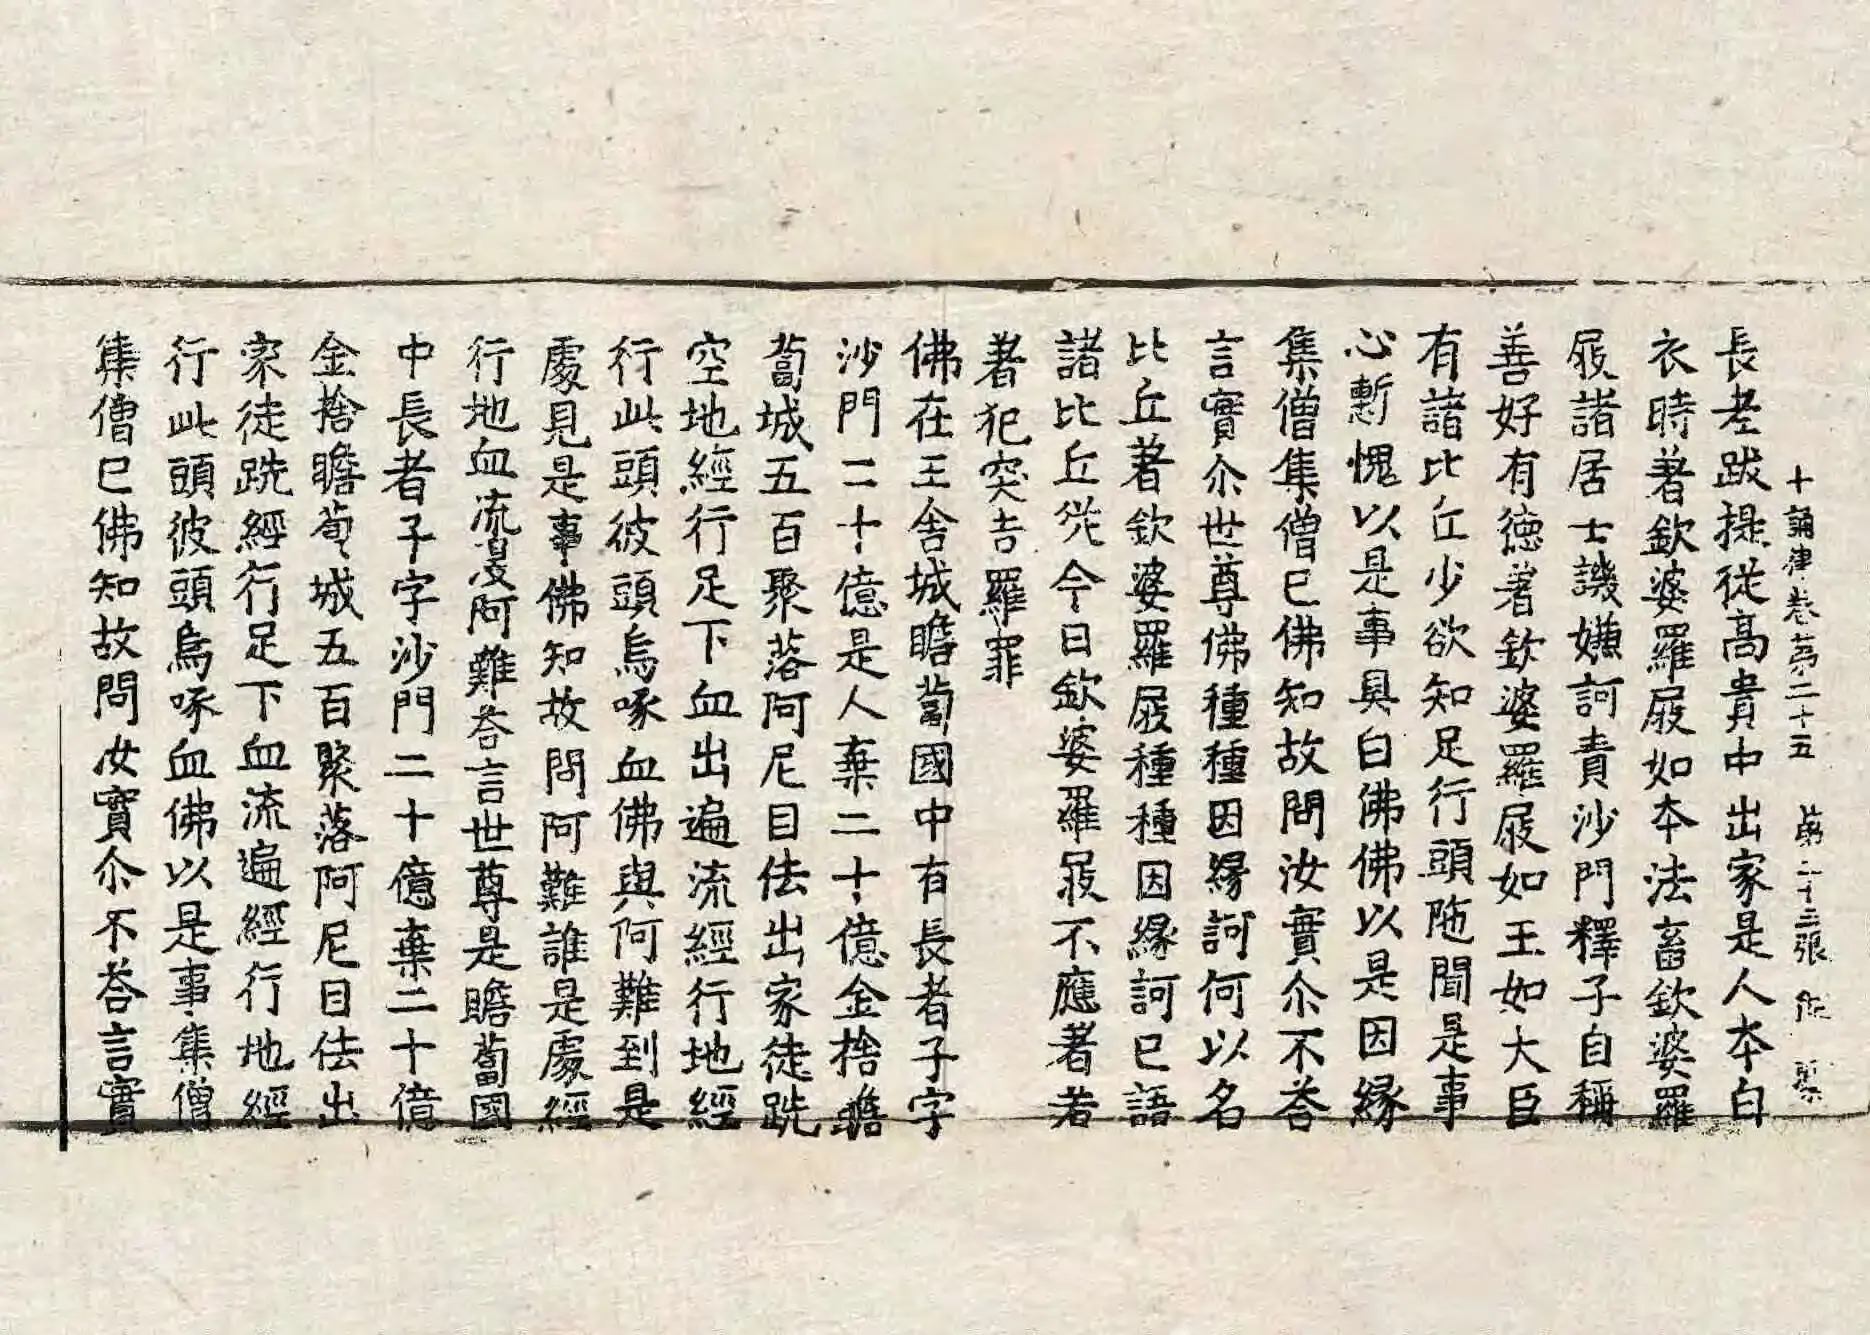 十誦律卷第二十五　第二十三張
長老跋提從高貴中出家是人本白
衣時著欽婆羅屐如本法畜欽婆羅
屐諸居士譏嫌訶責沙門釋子自稱
善好有德著欽婆羅屐如王如大臣
有諸比丘少欲知足行頭陁聞是事
心慙愧以是事具白佛佛以是因緣
集僧集僧已佛知故問汝實尒不荅
言實尒世尊佛種種因緣訶何以名
比丘著欽婆羅屐種種因緣訶已語
諸比丘從今日欽婆羅屐不應著若
著犯突吉羅罪
佛在王舍城瞻蔔國中有長者子字
沙門二十億是人棄二十億金捨瞻
蔔城五百聚落阿尼目佉出家徒跣
空地經行足下血出遍流經行地經
行此頭彼頭烏啄血佛與阿難到是
處見是事佛知故問阿難誰是處經
行地血流漫阿難荅言世尊是瞻蔔國
中長者子字沙門二十億棄二十億
金捨瞻蔔城五百聚落阿尼目佉出
家徒跣經行足下血流遍經行地經
行此頭彼頭烏啄血佛以是事集僧
集僧已佛知故問汝實尒不荅言實